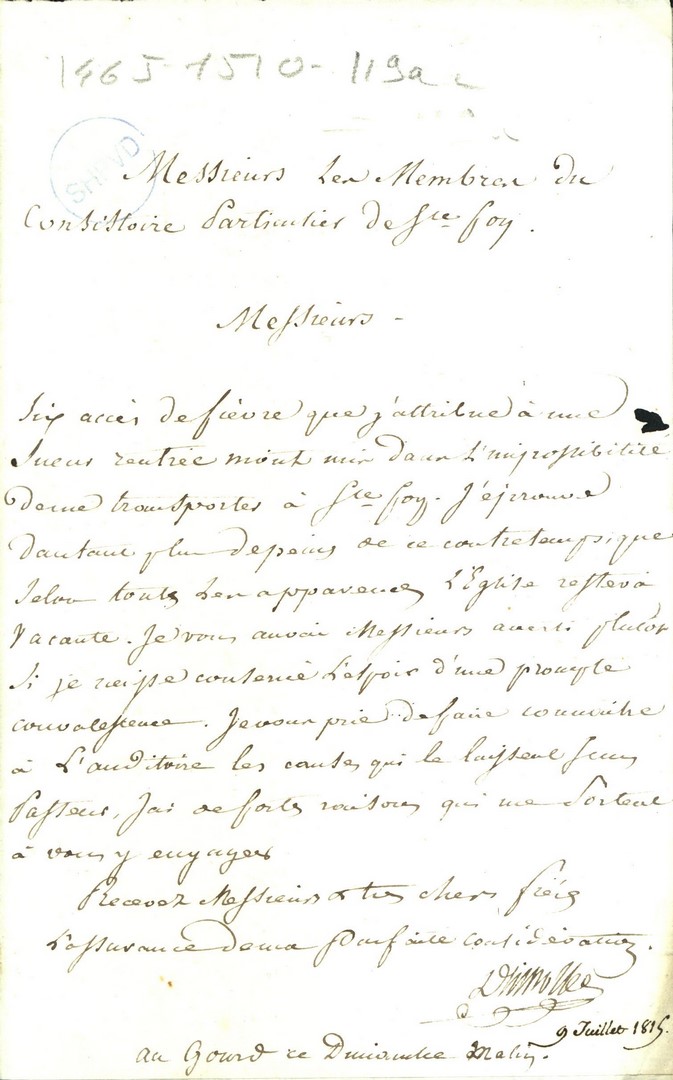 1465-1510-119a
SHPVD
Messieurs Les Membres du
Consistoire Particulier de Ste foy.
Messieurs -
Six accès de fièvre que j'attribue à une
Sueur rentrée m'ont mis dans L'impossibilité
de me transporter à Ste foy. J'éprouve
dautant plus de peine de ce contretemps que
Selon toutes Les apparences L'Eglise restera
Vacante. Je vous aurois Messieurs averti plutôt
Si je n'eusse conservé L'espoir d'une prompte
convalescence. Je vous prie de faire connoitre
à L'auditoire les causes qui le laissent Sans
Pasteur, J'ai de fortes raisons qui me Portent
à vous y engager
Recevez Messieurs & très chers frères
L'assurance de ma Parfaite considération.
9 Juillet 1815.
au Gourd ce Dimanche Matin.